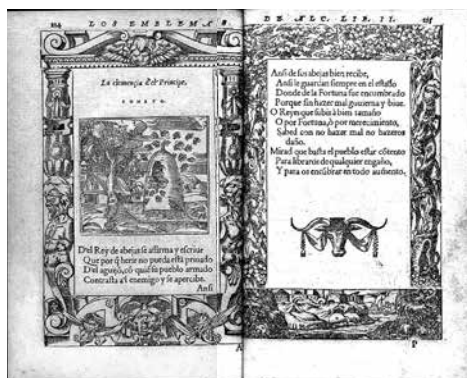 LOS EMBLEMAS
La clemencia d'el Principe.
SONETO.
D'el Rey de abejas se affirma y escriue
Que por q̃ herir no pueda està priuado
D'el aguijõ, cõ quiẽ su pueblo armado
Contrasta a'l enemigo y se apercibe.
Ansi
DE ALC. LIB. II.
Ansi de sus abejas bien recibe,
Ansi le guardan siempre en el estado
Donde de la Fortuna fue encumbrado
Porque sin hazer mal gouierna y biue.
O Reyes que subis à bien tamaño
O por Fortuna, ò por merecimiento,
Sabed con no hazer mal no hazeros
daño.
Mirad que basta el pueblo estar cõtento
Para libraros de qualquier engaño,
Y para os encũbrar en todo augmento.
P